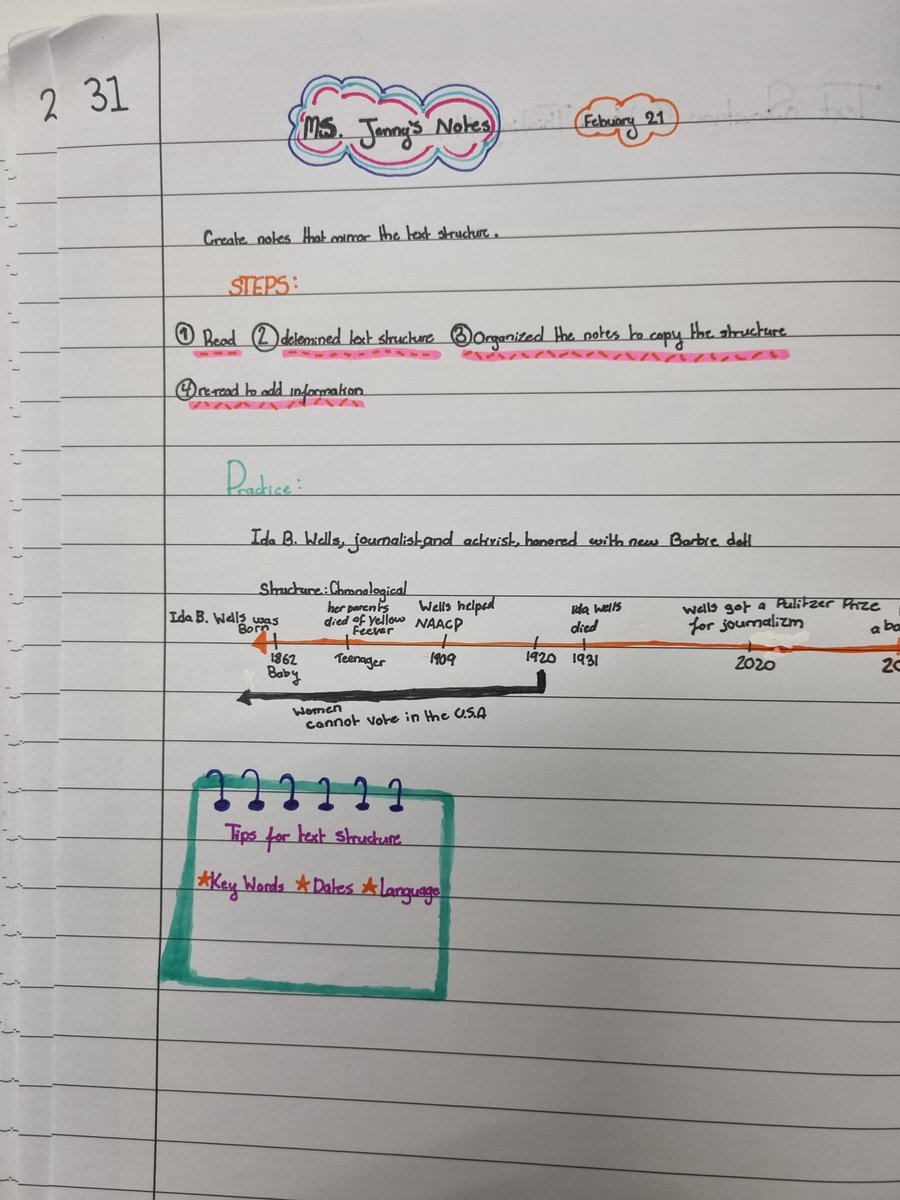 2 31
Ms. Jenny's Notes
Febuary 21
Create notes that mirror the text structure.
STEPS:
① Read ② determined text structure ③ Organized the notes to copy the structure
④ re-read to add information
Practice:
Ida B. Wells, journalist, and activist, honored with new Barbie doll
Structure: Chronological
Ida B. Wells was
Born
her parents
died of Yellow
Feever
Wells helped
NAACP
Ida Wells
died
Wells got a Pulitzer Prize
for journalizm
1862
Baby
Teenager
1909
1920
1931
2020
Women
cannot vote in the U.S.A
Tips for text structure
★Key Words ★Dates ★Language